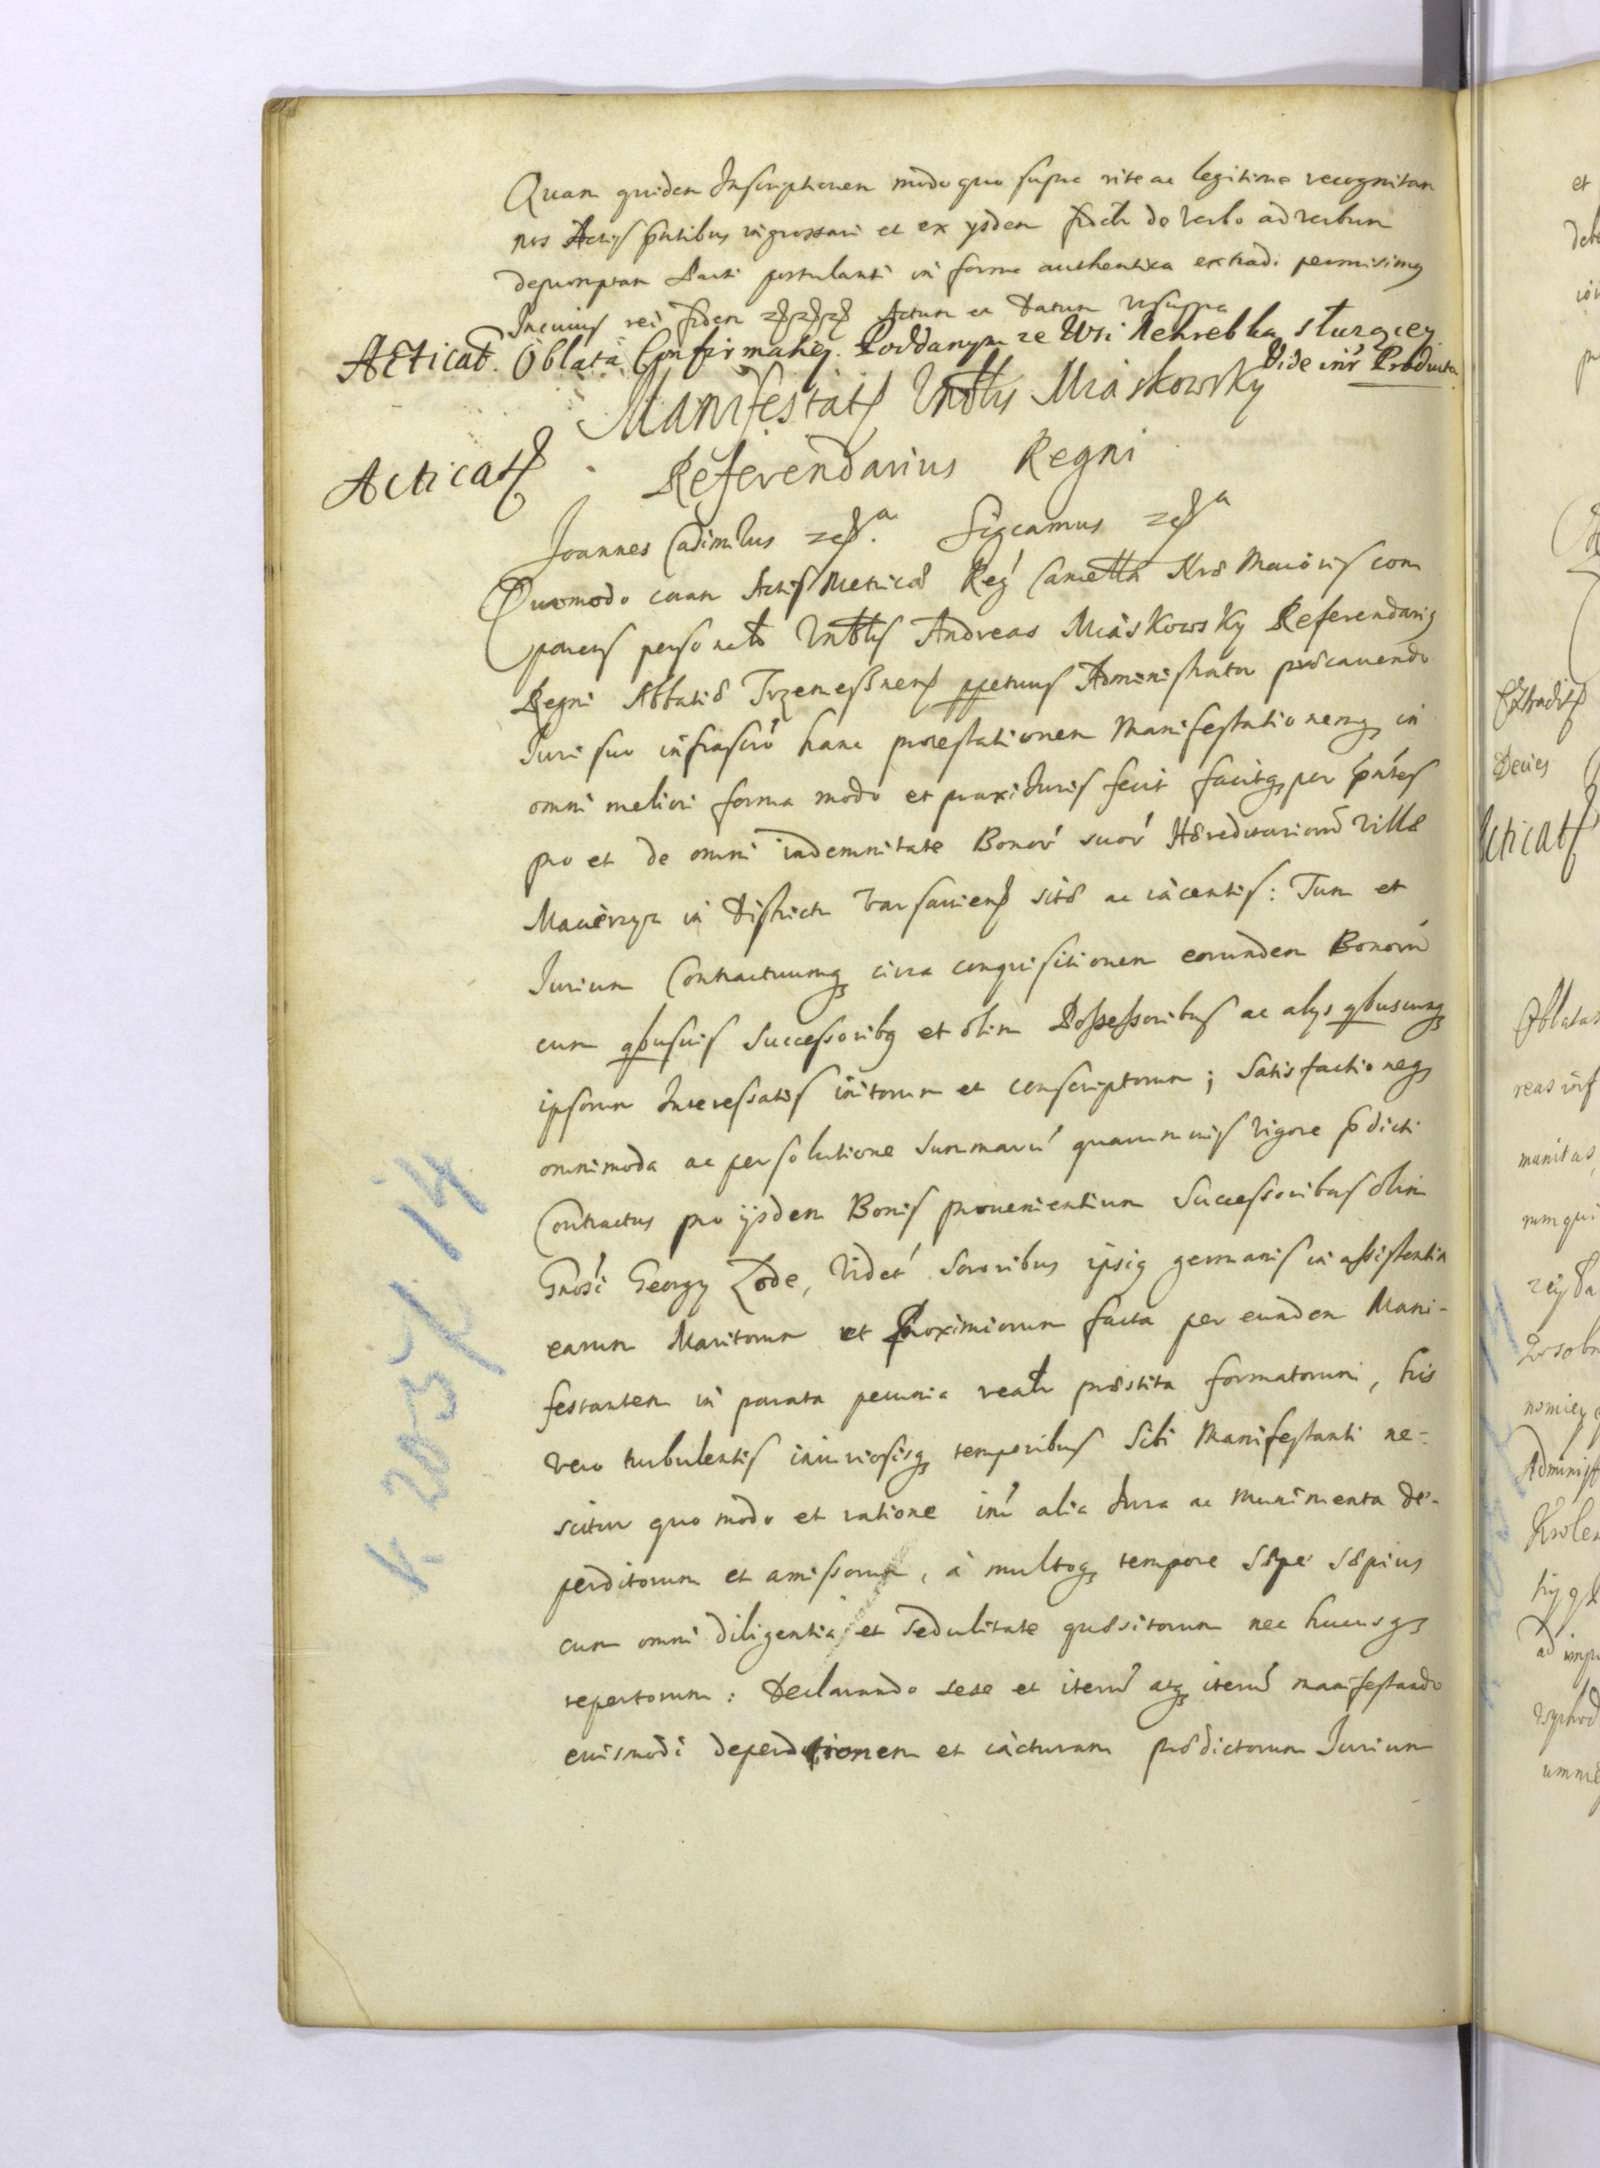 Quam quidem Inscriptionem modo quo supra rite ac legitime recognitam
nos Actis pntibus ingrossari et ex ysdem fidelr de verbo ad verbum
depromptam Parti postulanti in forma authentica extradi permisimus
In cuius rei fidem Actum et Datum ut supra
Acticat. Oblata Confirmatiey. Poddanym ze Wsi Nehrebka słurzącey
Vide inr Producta
Manifestat Vnblis Miaskowsky
Acticat Referendarius Regni
Joannes Casimirus Sigcamus
Quomodo coram Actis Metricæ Reg Cancella Nræ Maioris com
parens personalr Vnblis Andreas Miaskowsky Referendarig
Regni Abbatiæ Trzemessnens ppetuus Administrator præcavendo
Juri suo infrascro hanc protestationem Manifestationemq in
omni meliori forma modo et praxi Juris fecit facitq per pntes
pro et de omni indemnitate Bonor suor Hæreditariorū Villæ
in Districtu Varsaviens sitæ ac iacentis: Tum et
Jurium Contractuumq circa conquisitionem eorundem Bonorū
cum qbusvis Successoribq et olim Possessoribus ac alys qbuscunq
ipsorum Interessatis initorum et conscriptorum; Satisfactioneq
omnimoda ac persolutione Summarū quarumvis vigore pdicti
Contractus pro ijsdem Bonis provenientium Successoribus olim
Gnosi Georgy Zode, Videt Sororibus ipsiq germanis in assistentia
earum Maritorum et Proximiorum facta per eundem Mani-
festantem in parata pecunia realr præstita formatorum, his
vero turbulentis iniuriosisq temporibus Sibi Manifestanti ne-
scitur quo modo et ratione inr alia Jura ac Munimenta de-
perditorum et amissorum, à multoq tempore Sæpe Sæpius
cum omni diligentia et Sedulitate quæsitorum nec hucusq
repertorum: Declarando sese et iterū atq iterū manifestando
eiusmodi deperditionem et iacturam prædictorum Jurium
k. 205/14